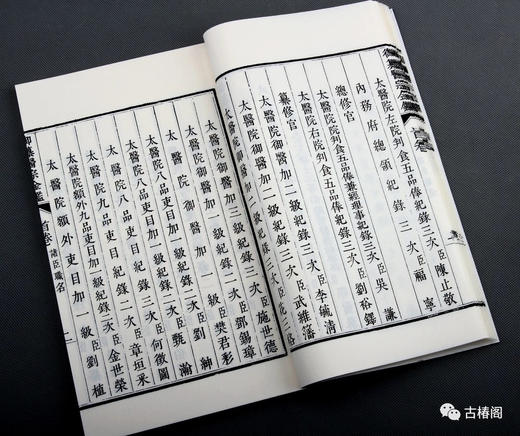 太醫院左院判食五品俸紀錄三次臣陳止敬
內務府總領紀錄三次臣福寧
總修官
太醫院院判食五品俸兼經理事紀錄三次臣吳謙
太醫院右院判食五品俸紀錄三次臣劉裕鐸
纂修官
太醫院御醫加二級紀錄三次臣李毓清
太醫院御醫加二級紀錄三次臣武維藩
太醫院御醫加一級紀錄二次臣花三格
太醫院御醫加三級紀錄三次臣施世德
太醫院御醫加二級紀錄三次臣鄧錫璋
太醫院御醫加一級臣樊君彩
太醫院御醫加一級臣劉紳
太醫院御醫臣甄瀚
太醫院八品吏目加一級紀錄二次臣何徵圖
太醫院八品吏目加一級紀錄二次臣章垣采
太醫院九品吏目紀錄二次臣金世榮
太醫院額外九品吏目加一級臣劉植
御纂醫宗金鑑 首卷 諸臣職名
古椿阁